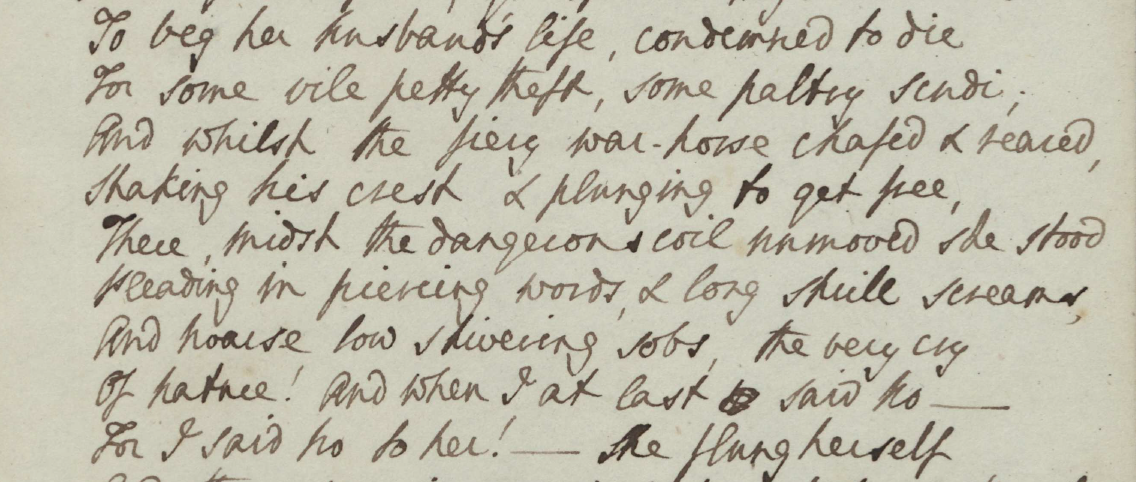 To beg her husband's life, condemned to die
For some vile petty theft, some paltry scudi;
And whilst the fiery war-horse chafed & reared,
Shaking his crest & plunging to get free,
There, midst the dangerous coil unmoved she stood
Pleading in piercing words, & long shrill screams,
And hoarse low shivering sobs, the very cry
Of nature! And when I at last said No —
For I said no to her! — She flung herself